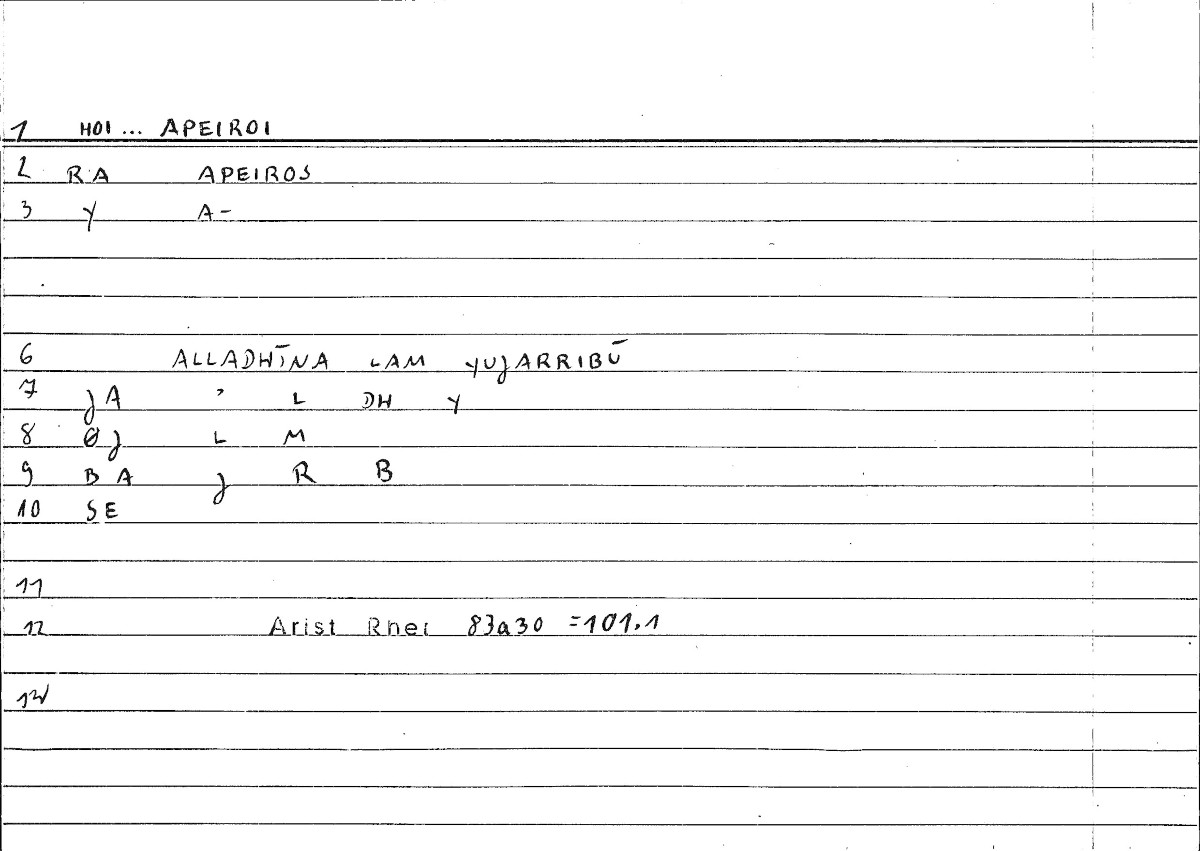 1 HOI ... APEIROI
2 RA APEIROS
3 Y A-
6 ALLADHĪNA LAM YUJARRIBŪ
7 JA ' L DH Y
8 ØJ L M
9 BA J R B
10 SE
11
12 Arist Rhet 83a30 =101.1